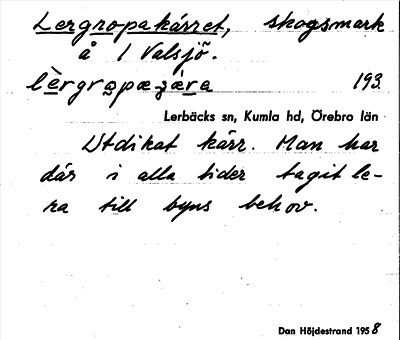 Lergropakärret, skogsmark
å 1 Valsjö.
lèrgro̱pæʒæ̀ra 193.
Lerbäcks sn, Kumla hd, Örebro län
Utdikat kärr. Man har
där i alla tider tagit le-
ra till byns behov.
Dan Höjdestrand 1958